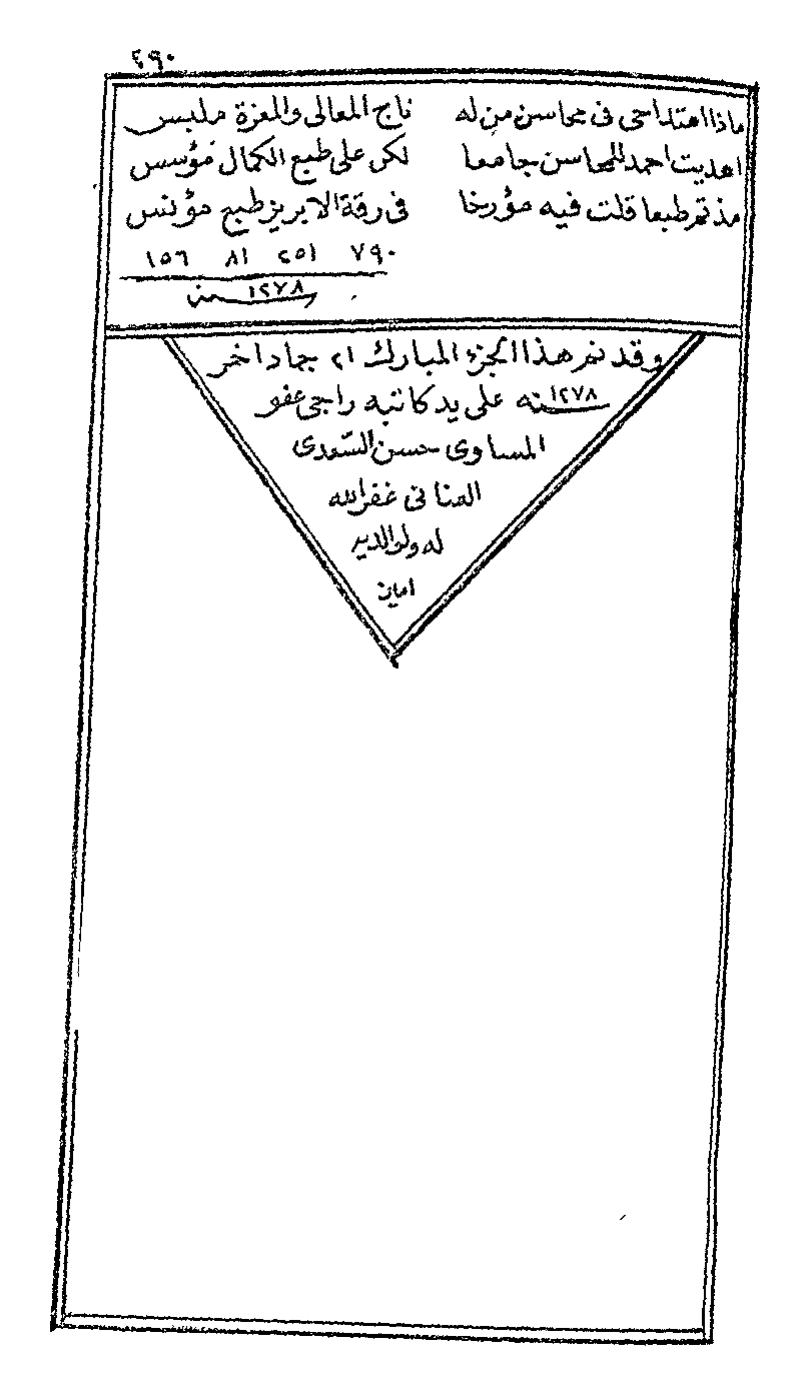 ٢٩٠
ماذا اهتداحى فى محاسن من له تاج المعالى والمعزة ملبس
اهديت احمد للمحاسن جامعا لكن على طبع الكمال مؤسس
مذ تم طبعا قلت فيه مؤرخا فى رقة الابريز طبع مؤنس
٧٩٠ ٢٥١ ٨١ ١٥٦
سنة ١٢٧٨
وقد تم هذا الجزء المبارك ٢١ جماد اخر
سنه ١٢٧٨ على يد كاتبه راجى عفو
المساوى حسن السعدى
العنانى غفر الله
له ولوالديه
امين